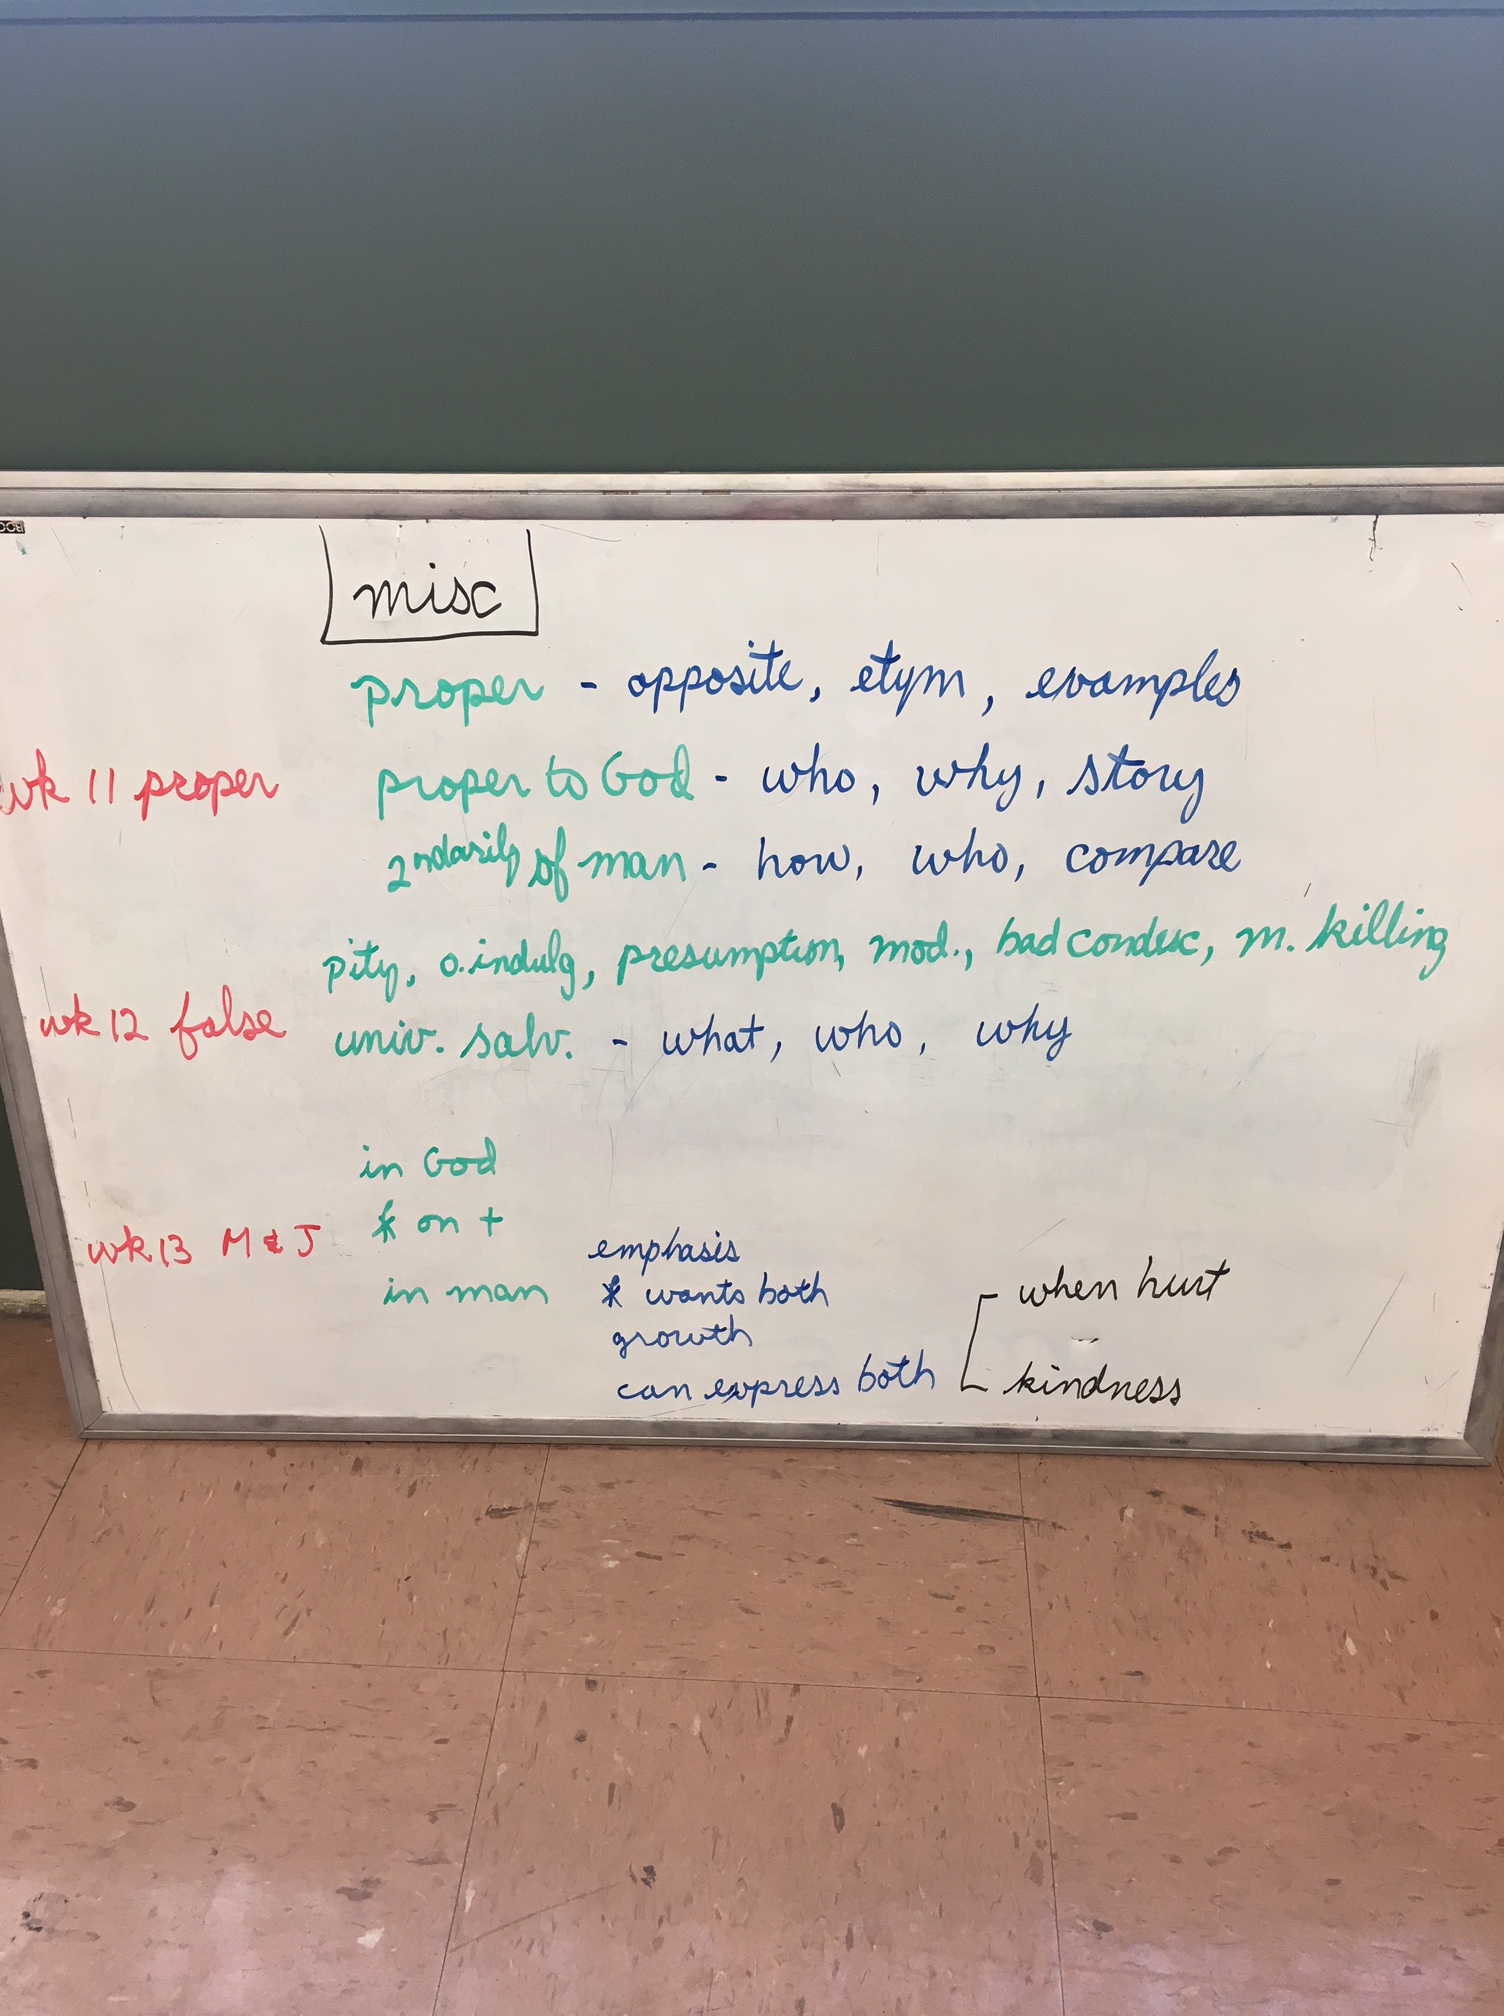 misc
proper - opposite, etym, examples
wk 11 proper
proper to God - who, why, story
2ndarily of man - how, who, compare
pity, o. indulg, presumption, mod., bad condesc, m. killing
wk 12 false
univ. salv. - what, who, why
in God
* on +
wk 13 M & J
in man
emphasis
* wants both
growth
can express both
when hurt
kindness